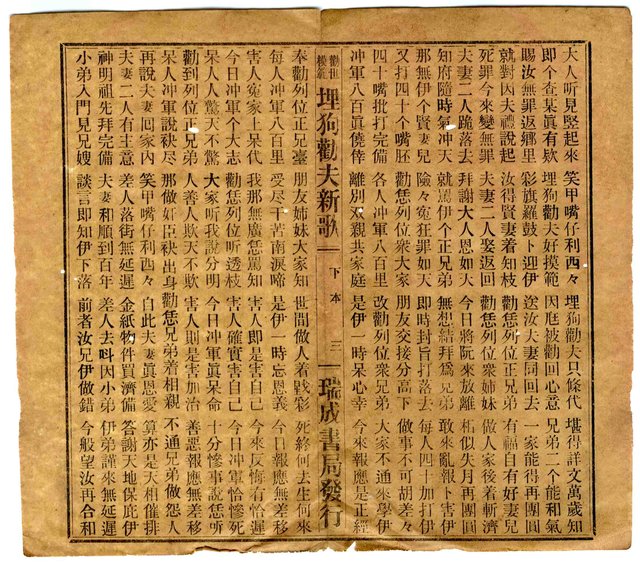 大人听見竪起來 笑甲嘴仔利西々 埋狗勸夫只條代 堪得詳文萬歲知
即个查某眞有欺 埋狗勸夫好摸範 因尫被勸回心意 兄弟二个能和氣
賜汝無罪返鄉里 彩旗羅鼓卜迎伊 送汝夫妻同回去 一家能得再團圓
就對因夫禮說起 汝得賢妻着知枝 勸恁列位正兄弟 有福自有好妻兒
死罪今來變無罪 夫妻二人娶返回 勸恁列位衆姉妹 做人家後着斬濟
夫妻二人跪落去 拜謝大人恩如天 今日將阮來放離 柘似失月再團圓
知府隨時氣冲天 就罵伊个正兄弟 無想結拜爲兄弟 敢來亂報卜害伊
那無伊个賢妻兒 險々冤狂罪如天 即時封旨打落去 每人四十加打伊
又打四十个嘴胚 勸恁列位衆大家 朋友交接分高下 做事不可胡差々
四十嘴批打完備 各人冲軍八百里 改勸列位衆兄弟 大家不通來學伊
冲軍八百眞僥倖 離別双親共家庭 是伊一時呆心幸 今來報應是正經
勸世模範 埋狗勸夫新歌 下本 三 瑞成書局發行
奉勸列位正兄臺 朋友姉妹大家知 世間做人着戥彩 死終何去生何來
每人冲軍八百里 受尽干苦南淚啼 是伊一時忘恩義 今日報應無差移
害人冤家上呆代 我那無廣恁罵知 害人即是害自己 今來反悔有恰遲
今日冲軍个大志 勸恁列位听透枝 害人確實害自己 今日冲軍恰慘死
呆人人驚天不驚 大家听我說分明 今日冲軍眞呆命 十分慘事說恁听
勸到列位正兄弟 人善人欺天不欺 害人則是害加治 善惡報應無差移
呆人冲軍說袂尽 那做奸臣袂出身 勸恁兄弟着相親 不通兄弟做怨人
再說夫妻回家内 笑甲嘴仔利西々 自此夫妻眞恩愛 算亦是天相催排
夫妻二人有主意 差人落街無延遲 金紙物件買濟備 答謝天地保庇伊
神明祖先拜完備 夫妻和順到百年 差人去呌因小弟 伊弟謹來無延遲
小弟入門見兄嫂 談言即知伊下落 前者汝兄伊做錯 今般望汝再合和